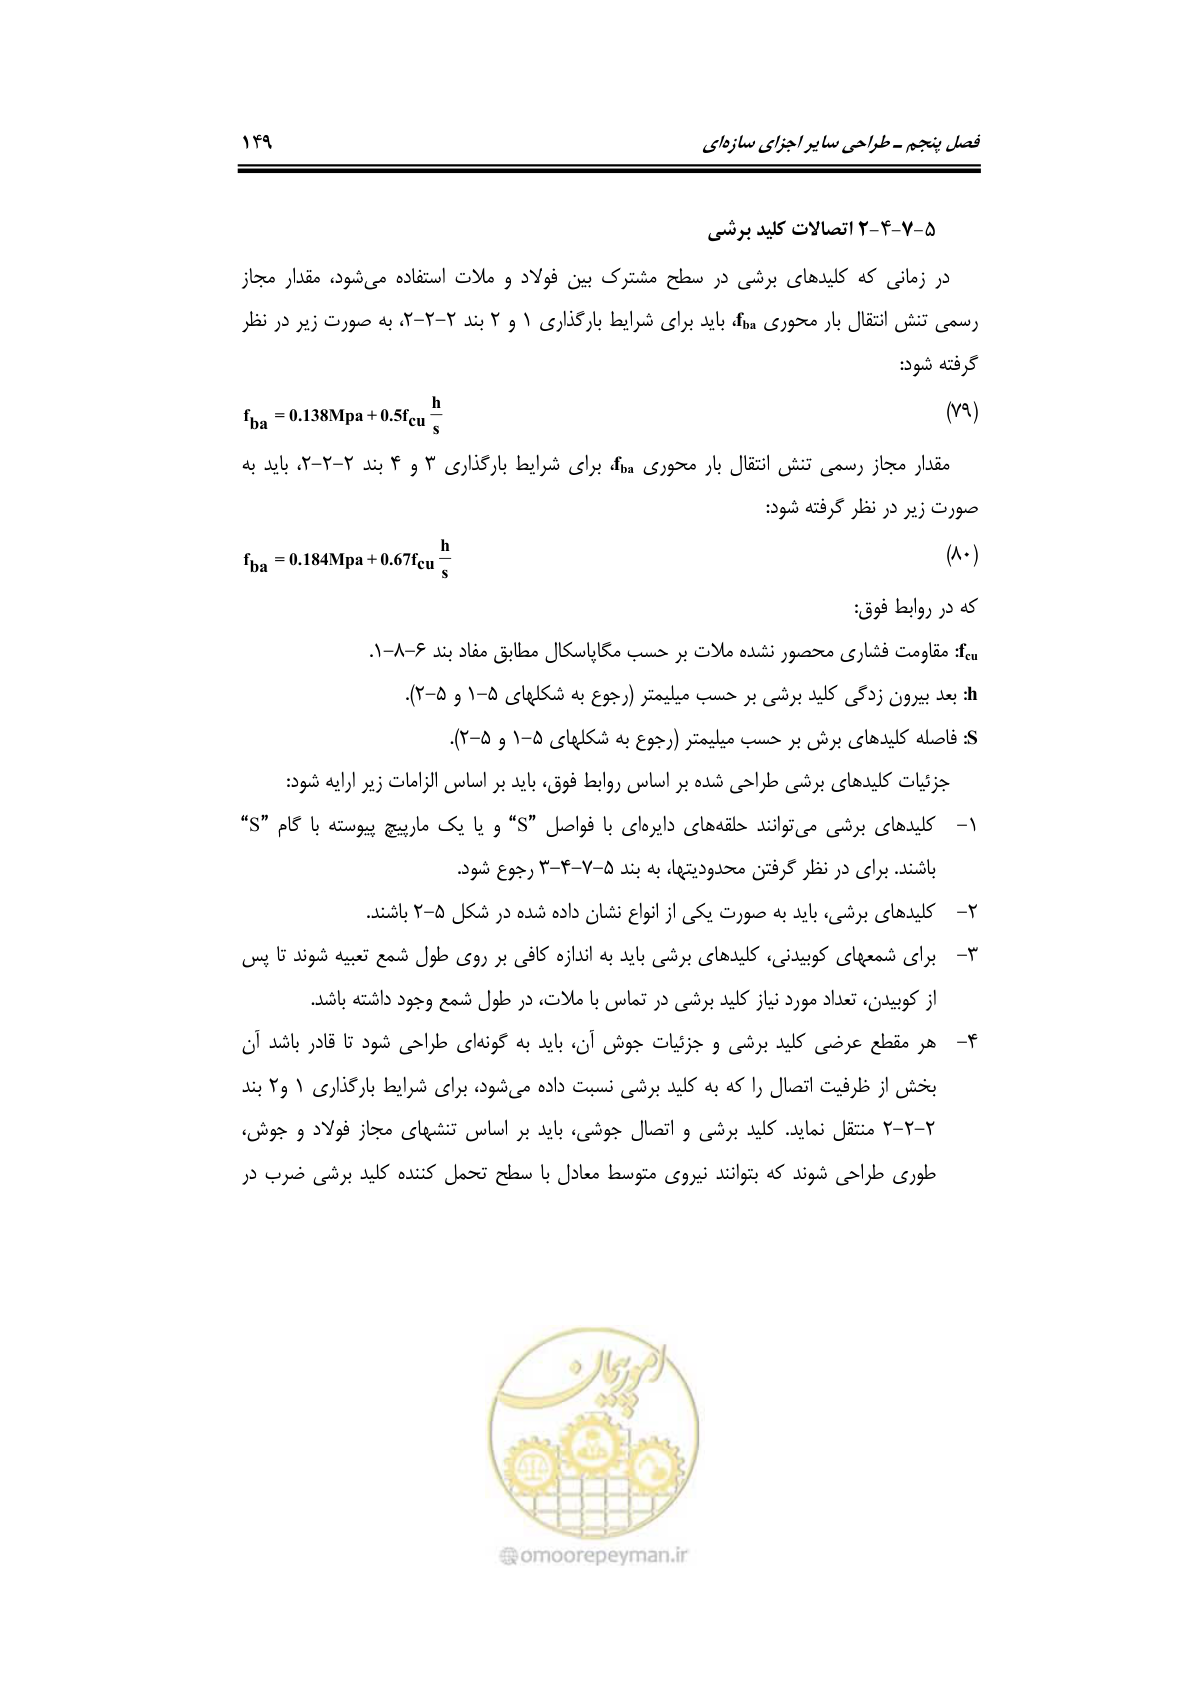 فصل پنجم ـ طراحی سایر اجزای سازه‌ای ۱۴۹
۵-۷-۴-۲ اتصالات کلید برشی
در زمانی که کلیدهای برشی در سطح مشترک بین فولاد و ملات استفاده می‌شود، مقدار مجاز
رسمی تنش انتقال بار محوری fba، باید برای شرایط بارگذاری ۱ و ۲ بند ۲-۲-۲، به صورت زیر در نظر
گرفته شود:
(۷۹) fba = 0.138Mpa + 0.5fcu h/s
مقدار مجاز رسمی تنش انتقال بار محوری fba، برای شرایط بارگذاری ۳ و ۴ بند ۲-۲-۲، باید به
صورت زیر در نظر گرفته شود:
(۸۰) fba = 0.184Mpa + 0.67fcu h/s
که در روابط فوق:
fcu: مقاومت فشاری محصور نشده ملات بر حسب مگاپاسکال مطابق مفاد بند ۶-۸-۱.
h: بعد بیرون زدگی کلید برشی بر حسب میلیمتر (رجوع به شکلهای ۵-۱ و ۵-۲).
S: فاصله کلیدهای برش بر حسب میلیمتر (رجوع به شکلهای ۵-۱ و ۵-۲).
جزئیات کلیدهای برشی طراحی شده بر اساس روابط فوق، باید بر اساس الزامات زیر ارایه شود:
۱- کلیدهای برشی می‌توانند حلقه‌های دایره‌ای با فواصل “S” و یا یک مارپیچ پیوسته با گام “S”
باشند. برای در نظر گرفتن محدودیتها، به بند ۵-۷-۴-۳ رجوع شود.
۲- کلیدهای برشی، باید به صورت یکی از انواع نشان داده شده در شکل ۵-۲ باشند.
۳- برای شمعهای کوبیدنی، کلیدهای برشی باید به اندازه کافی بر روی طول شمع تعبیه شوند تا پس
از کوبیدن، تعداد مورد نیاز کلید برشی در تماس با ملات، در طول شمع وجود داشته باشد.
۴- هر مقطع عرضی کلید برشی و جزئیات جوش آن، باید به گونه‌ای طراحی شود تا قادر باشد آن
بخش از ظرفیت اتصال را که به کلید برشی نسبت داده می‌شود، برای شرایط بارگذاری ۱ و۲ بند
۲-۲-۲ منتقل نماید. کلید برشی و اتصال جوشی، باید بر اساس تنشهای مجاز فولاد و جوش،
طوری طراحی شوند که بتوانند نیروی متوسط معادل با سطح تحمل کننده کلید برشی ضرب در
امور پیمان
@omoorepeyman.ir